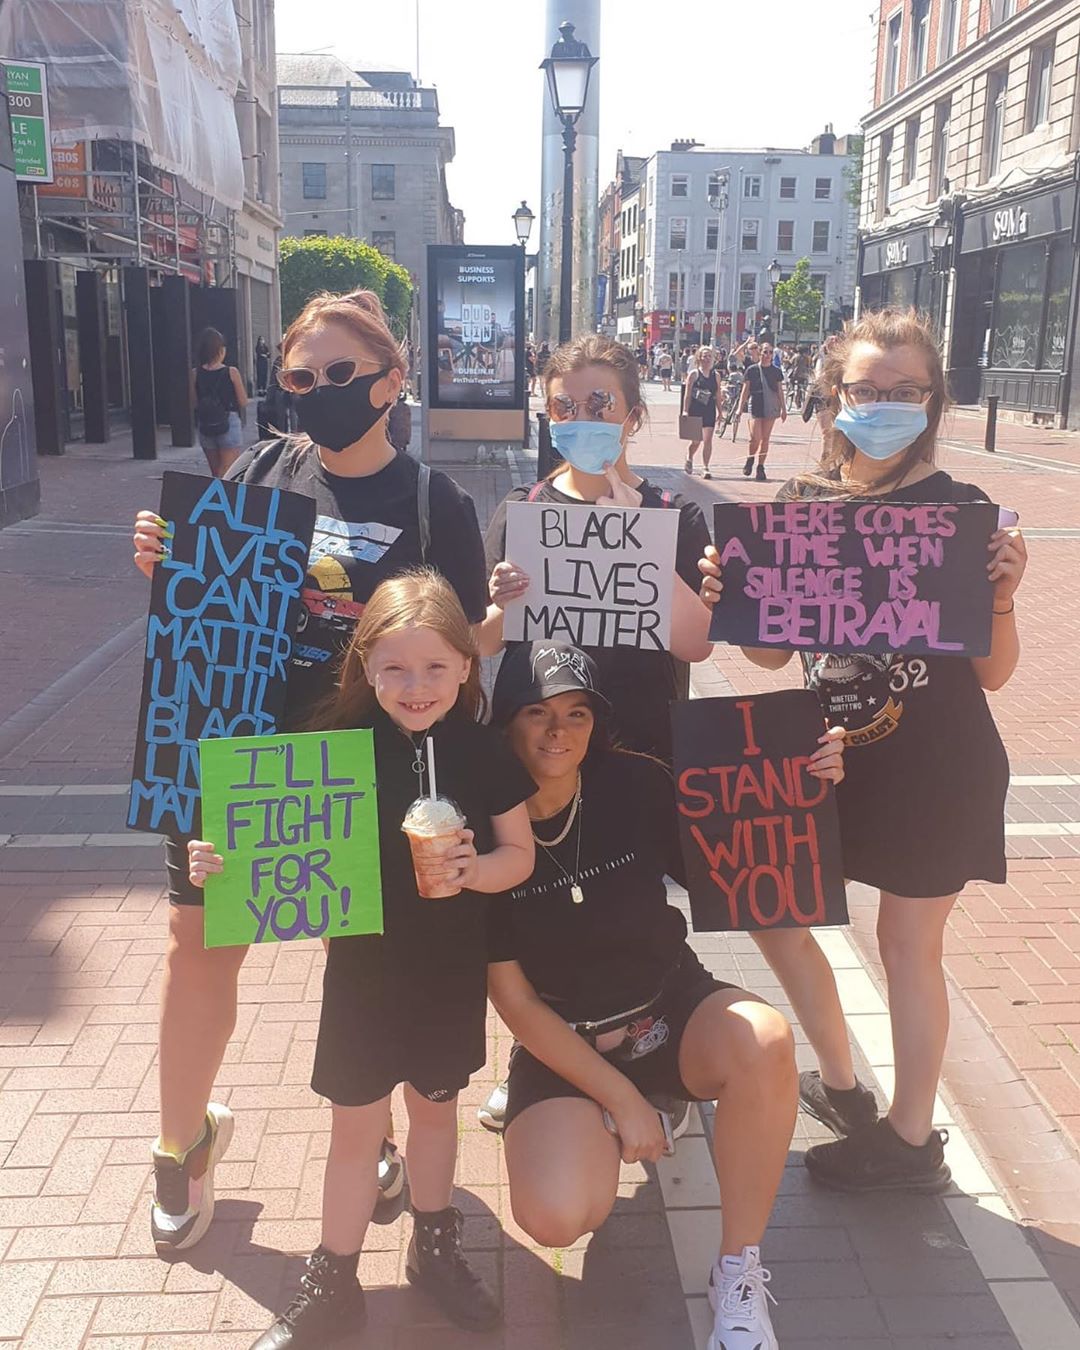 RYAN
300
LE
CHOS
COS
BUSINESS
SUPPORTS
DUB
LIN
DUBLIN.IE
#InThisTogether
SOMa
SOMa
ALL
LIVES
CAN'T
MATTER
UNTIL
BLACK
LIV
MAT
BLACK
LIVES
MATTER
THERE COMES
A TIME WHEN
SILENCE IS
BETRAYAL
I'LL
FIGHT
FOR
YOU!
I
STAND
WITH
YOU
32
NINETEEN
THIRTY TWO
COAST
TOUR
NEW